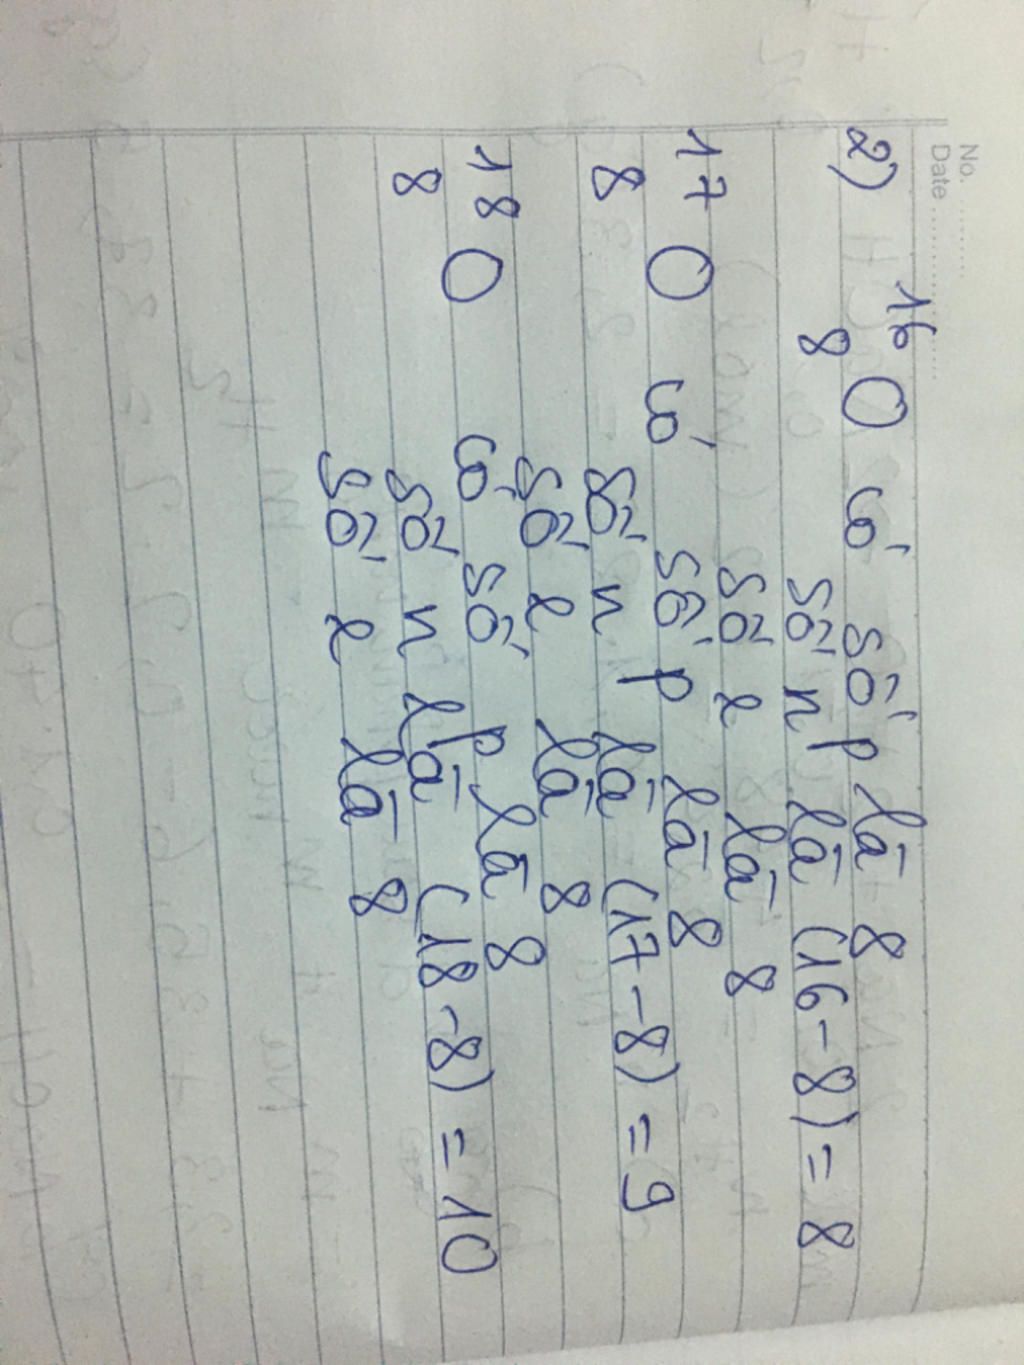 No. ..........
Date ....................
2) ¹⁶₈O có số p là 8
số n là (16-8) = 8
số e là 8
¹⁷₈O có số p là 8
số n là (17-8) = 9
số e là 8
¹⁸₈O có số p là 8
số n là (18-8) = 10
số e là 8